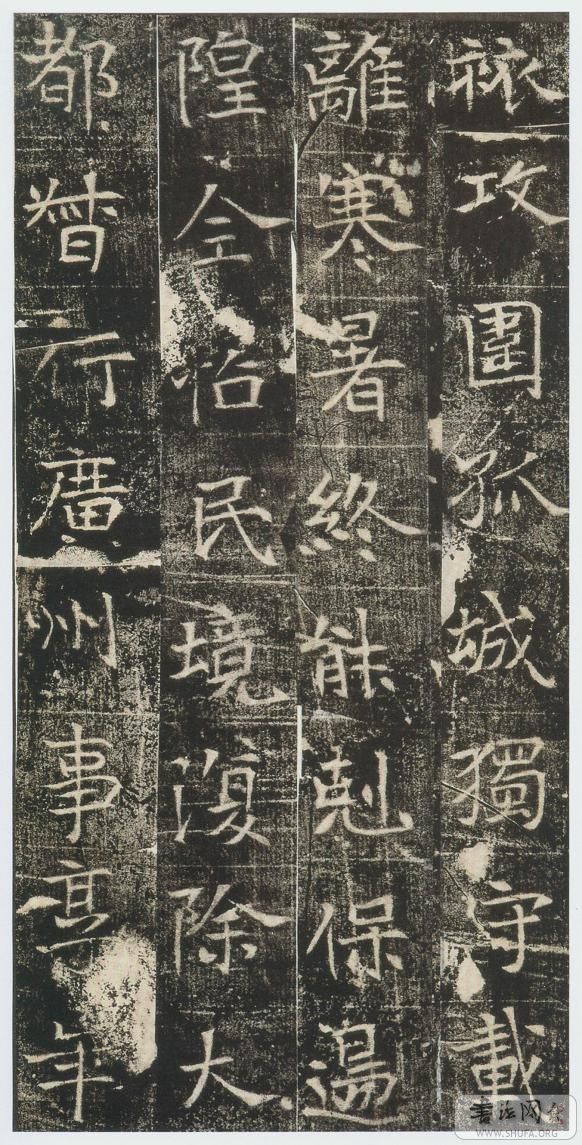 攻圍孤城獨守載
離寒暑終能剋保邊
隍全怗民境復除大
都督行廣州事享年
書法网
WWW.SHUFA.ORG